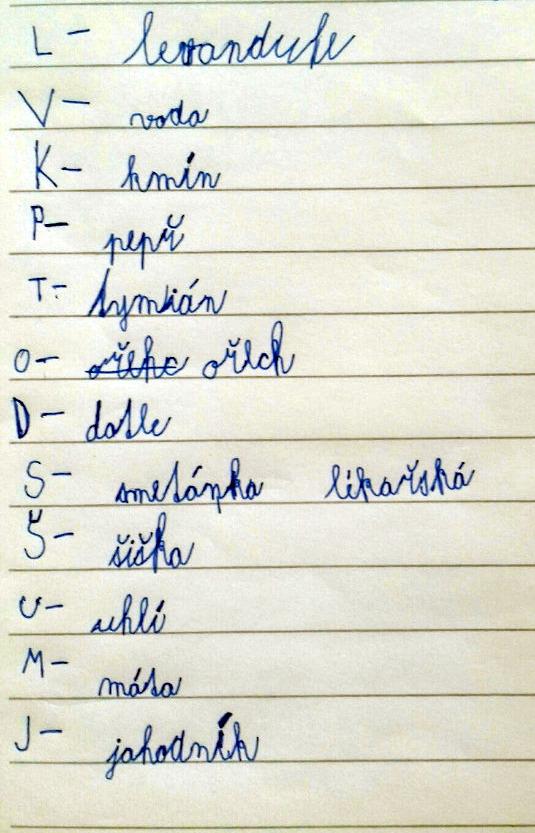 L - levandule
V - voda
K - kmín
P - pepř
T - tymián
O - ořehc ořech
D - datle
S - smetánka lékařská
Š - šiška
U - uhlí
M - máta
J - jahodník